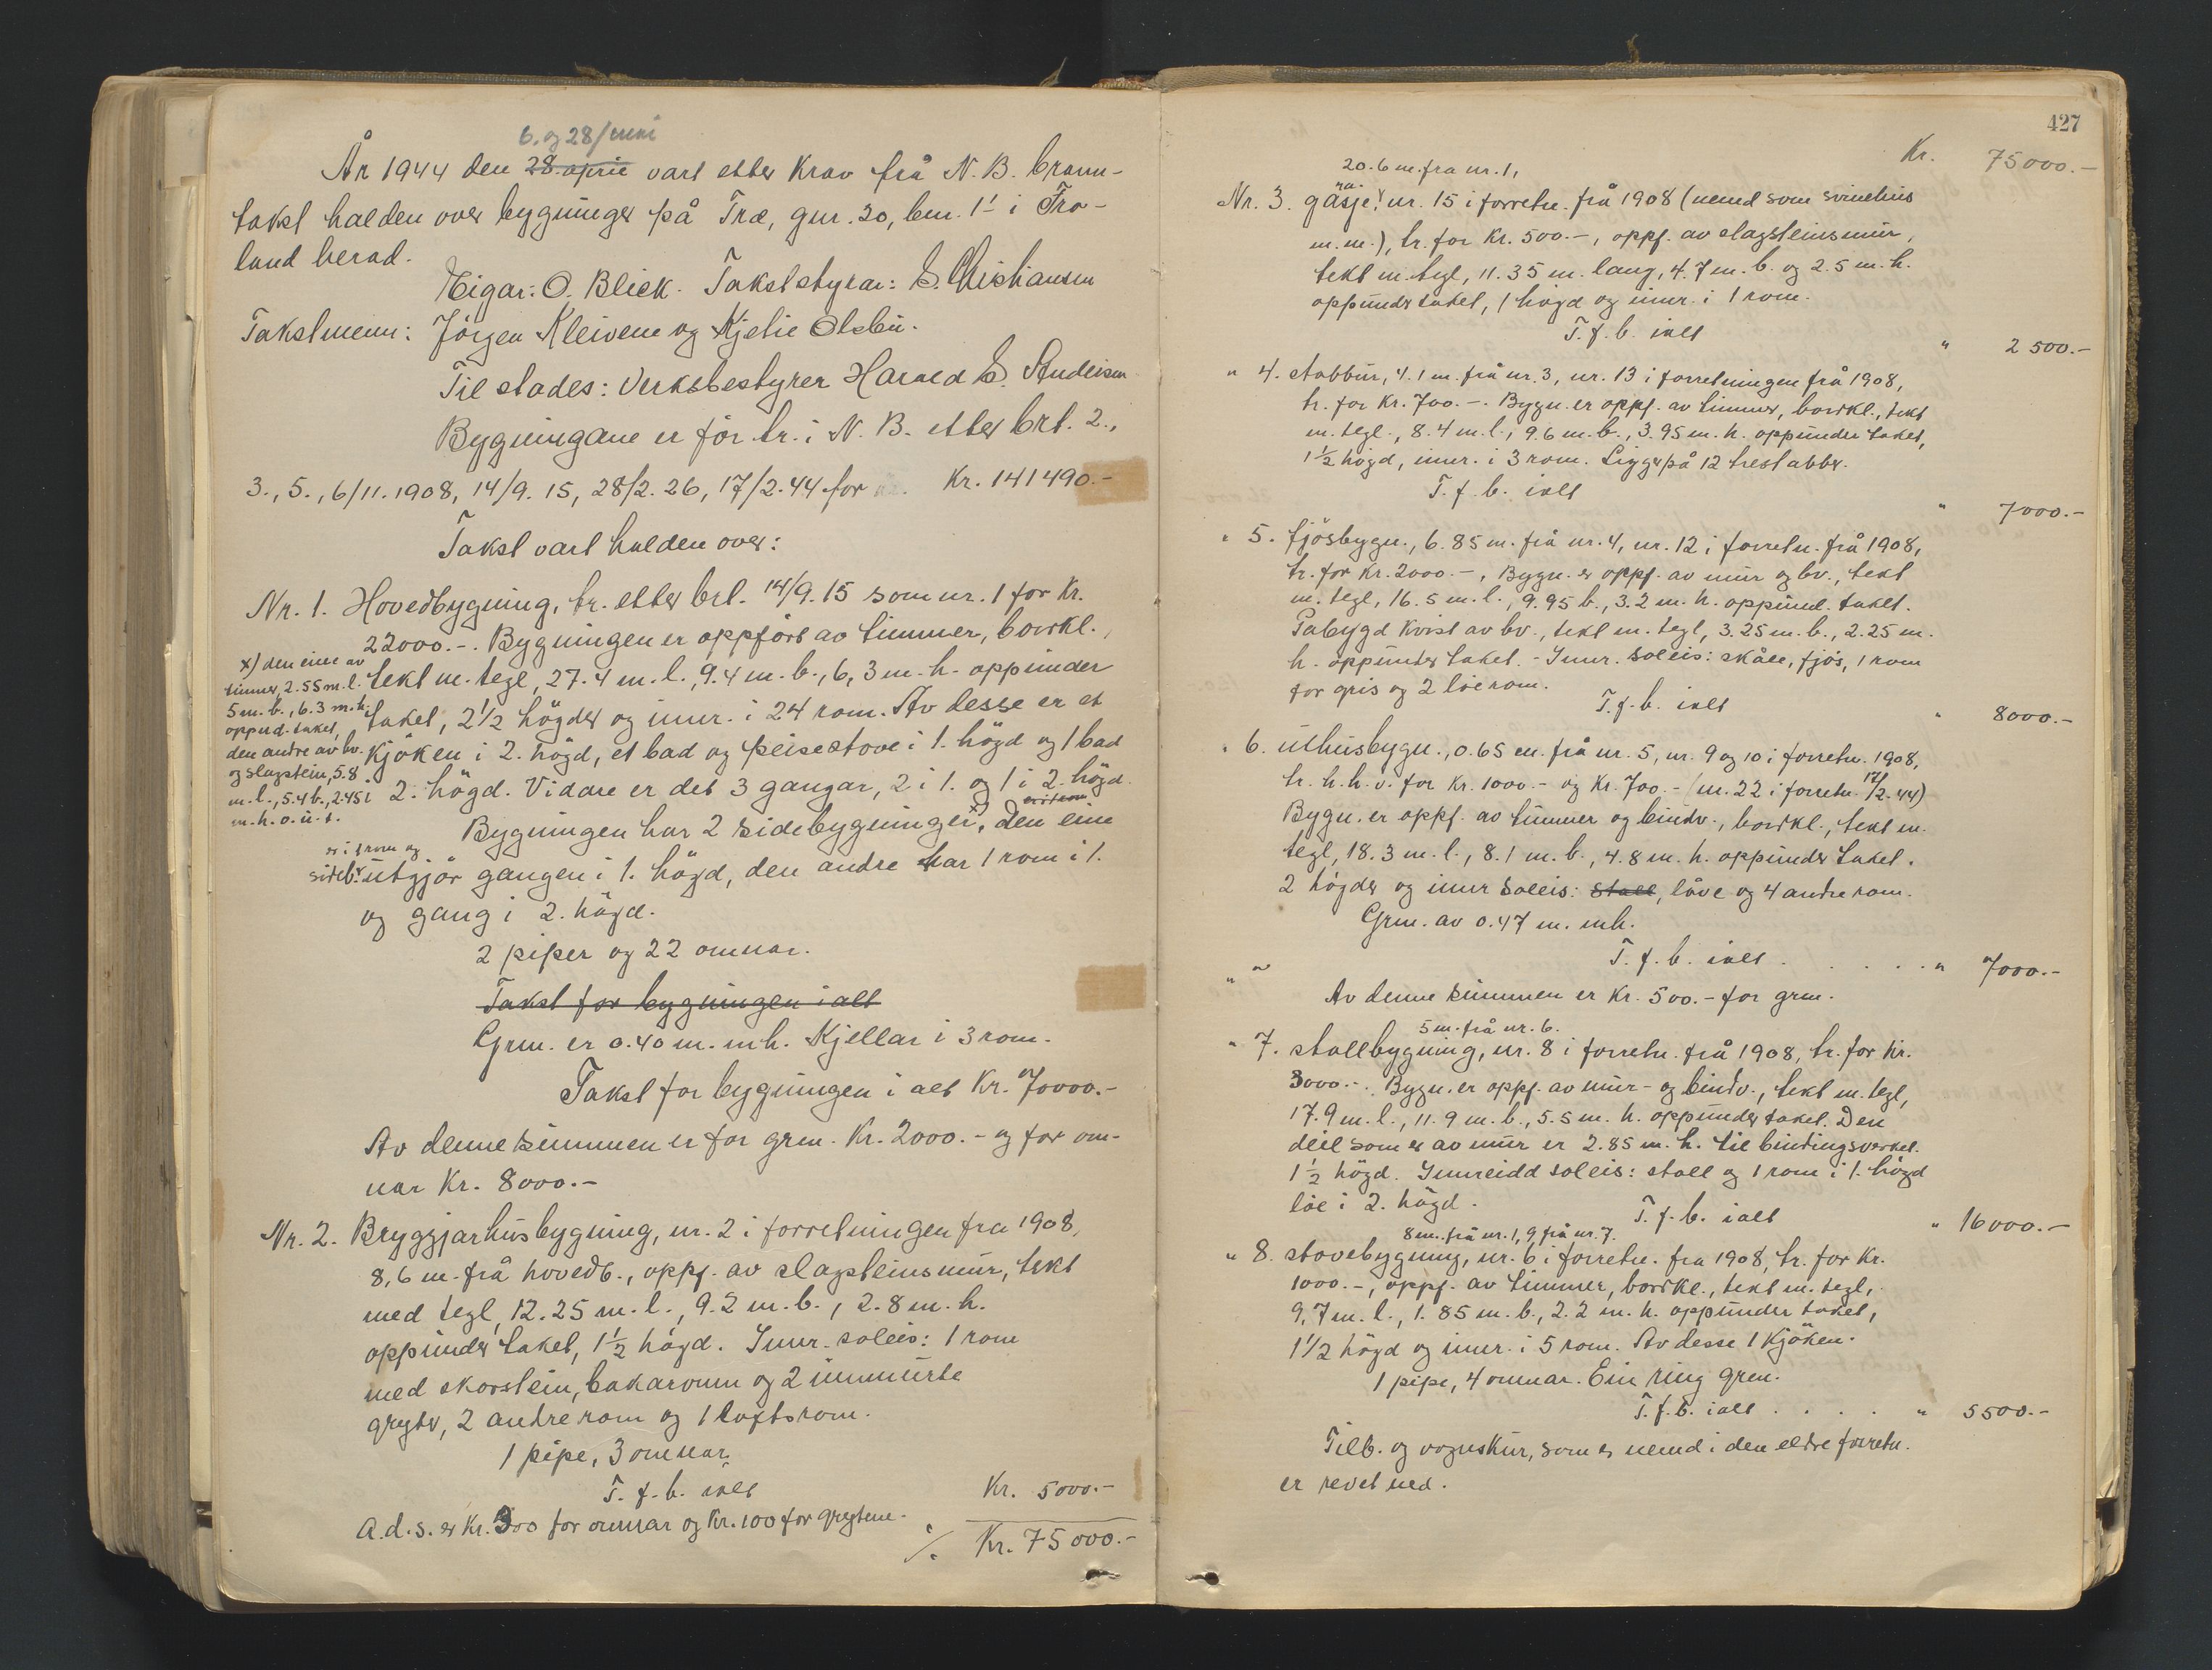 6. og 28/juni
År 1944 den 28. april vart etter krav frå N. B. brann-
takst halden over bygninger på Træ, gnr. 20, bnr. 1 i Tro-
land herad.
Eigar: O. Blick. Takststyrar: S. Christiansen
Takstmenn: Jörgen Kleivene og Kjetil Olsbu.
Til stades: Verksbestyrer Harald S. Andersen
Bygningane er för tr. i N. B. etter brt. 2.,
3., 5., 6/11. 1908, 14/9. 15, 28/2. 26, 17/2. 44 for Kr. 141490.-
Takst vart halden over:
Nr. 1. Hovedbygning, tr. etter brt. 14/9. 15 som nr. 1 for Kr.
22000.-. Bygningen er oppfört av timmer, bordkl.,
tekt m. tegl, 27.4 m. l., 9.4 m. b., 6,3 m. h. oppunder
taket, 2½ högder og innr. i 24 rom. Av desse er et
kjöken i 2. högd, et bad og peisestove i 1. högd og 1 bad
2. högd. Vidare er det 3 gangar, 2 i 1. og 1 i 2. högd.
x) den eine av
timmer, 2.55 m. l.
5 m. b., 6.3 m. h.
oppud. taket,
den andre av bv.
og slagstein, 5.8
m. l., 5.4 b., 2.45
m. h. o. u. t.
Bygningen har 2 sidebygninger, x) den eine
er i 1 rom og
sideb. utgjör gangen i 1. högd, den andre har 1 rom i 1.
og gang i 2. högd.
2 piper og 22 omnar.
Takst for bygningen i alt
Grm. er 0.40 m. mh. Kjellar i 3 rom.
Takst for bygningen i alt Kr. 70000.-
Av denne summen er for grm. Kr. 2000.- og for om-
nar Kr. 8000.-
Nr. 2. Bryggjarhusbygning, nr. 2 i forretningen fra 1908,
8,6 m. frå hovedb., oppf. av slagsteinsmur, tekt
med tegl, 12.25 m. l., 9.2 m. b., 2.8 m. h.
oppunder taket, 1½ högd. Innr. soleis: 1 rom
med skorstein, bakaromn og 2 innmurte
gryter, 2 andre rom og 1 loftsrom.
1 pipe, 3 omnar.
T. f. b. ialt Kr. 5000.-
A. d. s. er Kr. 300 for omnar og Kr. 100 for grytene.
./. Kr. 75000.-
427
Kr. 75000.-
20.6 m. fra nr. 1,
Nr. 3. nr. 15 i forretn. frå 1908 (nemd som svinehus
m. m.), tr. for Kr. 500.-, oppf. av slagsteinsmur,
tekt m. tegl, 11.35 m. lang, 4.7 m. b. og 2.5 m. h.
oppunder taket, 1 högd og innr. i 1 rom.
T. f. b. ialt " 2500.-
" 4. stabbur, 4.1 m. frå nr. 3, nr. 13 i forretningen frå 1908,
tr. for Kr. 700.-. Bygn. er oppf. av timmer, bordkl., tekt
m. tegl., 8.4 m. l., 9.6 m. b., 3.95 m. h. oppunder taket,
1½ högd, innr. i 3 rom. Ligger på 12 trestabber.
T. f. b. ialt " 7000.-
" 5. fjösbygn., 6.85 m. frå nr. 4, nr. 12 i forretn. frå 1908,
tr. for Kr. 2000.-, Bygn. er oppf. av mur og bv., tekt
m. tegl, 16.5 m. l., 9.95 b., 3.2 m. h. oppund. taket.
Påbygd kvist av bv., tekt m. tegl, 3.25 m. b., 2.25 m.
h. oppunder taket. - Innr. soleis: skåle, fjös, 1 rom
for gris og 2 löerom.
T. f. b. ialt " 8000.-
" 6. uthusbygn., 0.65 m. frå nr. 5, nr. 9 og 10 i forretn. 1908,
tr. h. h. v. for Kr. 1000.- og Kr. 700.- (nr. 22 i forretn. 17/2. 44)
Bygn. er oppf. av timmer og bindv., bordkl., tekt m.
tegl, 18.3 m. l., 8.1 m. b., 4.8 m. h. oppunder taket.
2 högder og innr soleis: stall, löve og 4 andre rom.
Grm. av 0.47 m. mh.
T. f. b. ialt . . . . . " 7000.-
" "
Av denne summen er Kr. 500.- for grm.
5 m. frå nr. 6.
" 7. stallbygning, nr. 8 i forretn. frå 1908, tr. for Kr.
3000.-. Bygn. er oppf. av mur- og bindv., tekt m. tegl,
17.9 m. l., 11.9 m. b., 5.5 m. h. oppunder taket. Den
deil som er av mur er 2.85 m. h. til bindingsverket.
1½ högd. Innreidd soleis: stall og 1 rom i 1. högd
löe i 2. högd.
T. f. b. ialt " 16000.-
8 m. frå nr. 1, 9 frå nr. 7.
" 8. stovebygning, nr. 6 i forretn. fra 1908, tr. for Kr.
1000.-, oppf. av timmer, bordkl., tekt m. tegl,
9,7 m. l., 1.85 m. b., 2.2 m. h. oppunder taket,
1½ högd og innr. i 5 rom. Av desse 1 kjöken.
1 pipe, 4 omnar. Ein ring grm.
T. f. b. ialt . . . . " 5500.-
Tilb. og vognskur, som er nemd i den eldre forretn.
er revet ned.